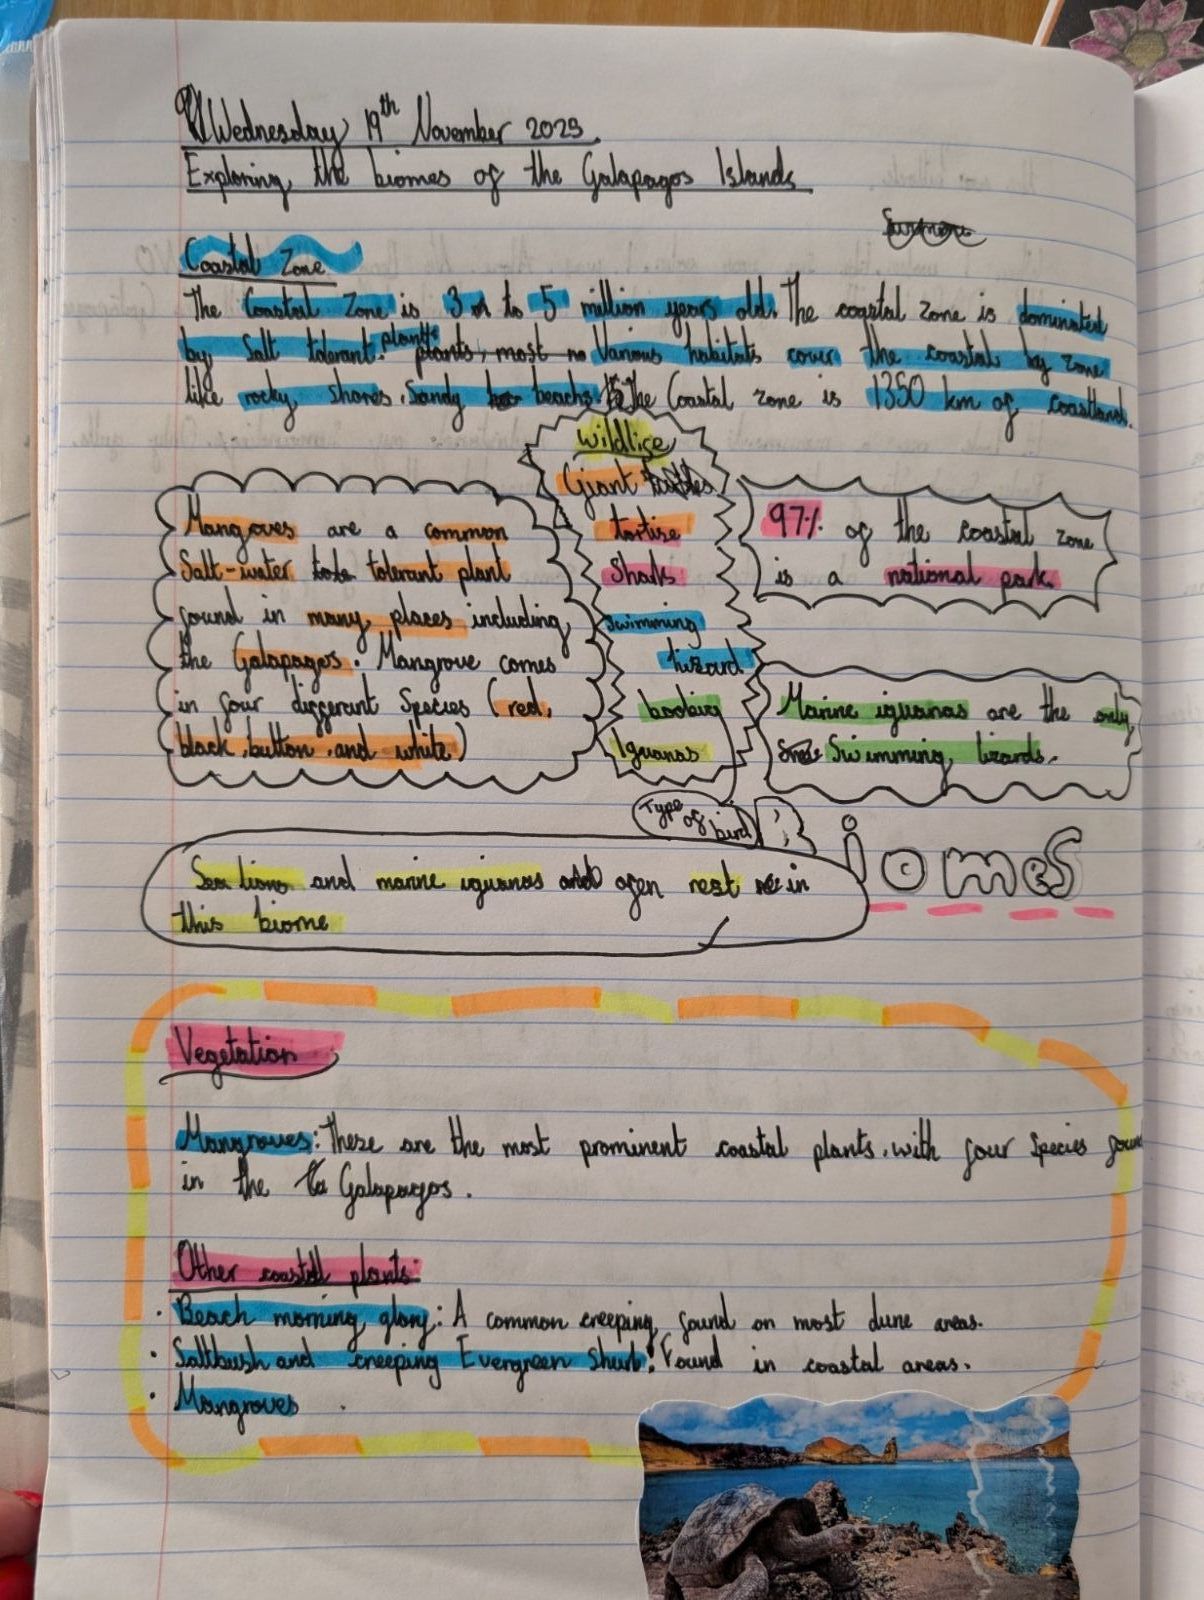 Wednesday 19th November 2025.
Exploring the biomes of the Galapagos Islands
Coastal Zone
The Coastal Zone is 3 to 5 million years old. The coastal zone is dominated
by Salt tolerant plants. Various habitats cover the coastal by zone
like rocky shores, Sandy beachs. The Coastal zone is 1350 km of coastland.
Wildlife
Giant
tortise
Sharks
Swimming
lizard
booking
Iguanas
Mangroves are a common
Salt-water tolerant plant
found in many places including
the Galapagos. Mangrove comes
in four differant Species (red,
black, button, and white)
97% of the coastal zone
is a national park.
Marine iguanas are the only
Swimming lizards.
Type
of
bird
Biomes
Sea lions and marine iguanas ofen rest in
this biome
Vegetation
Mangroves: These are the most prominent coastal plants, with four Species
in the Galapagos.
Other coastal plants:
· Beach morning glory: A common creeping found on most dune areas.
· Saltbush and creeping Evergreen Shurb: Found in coastal areas.
· Mangroves